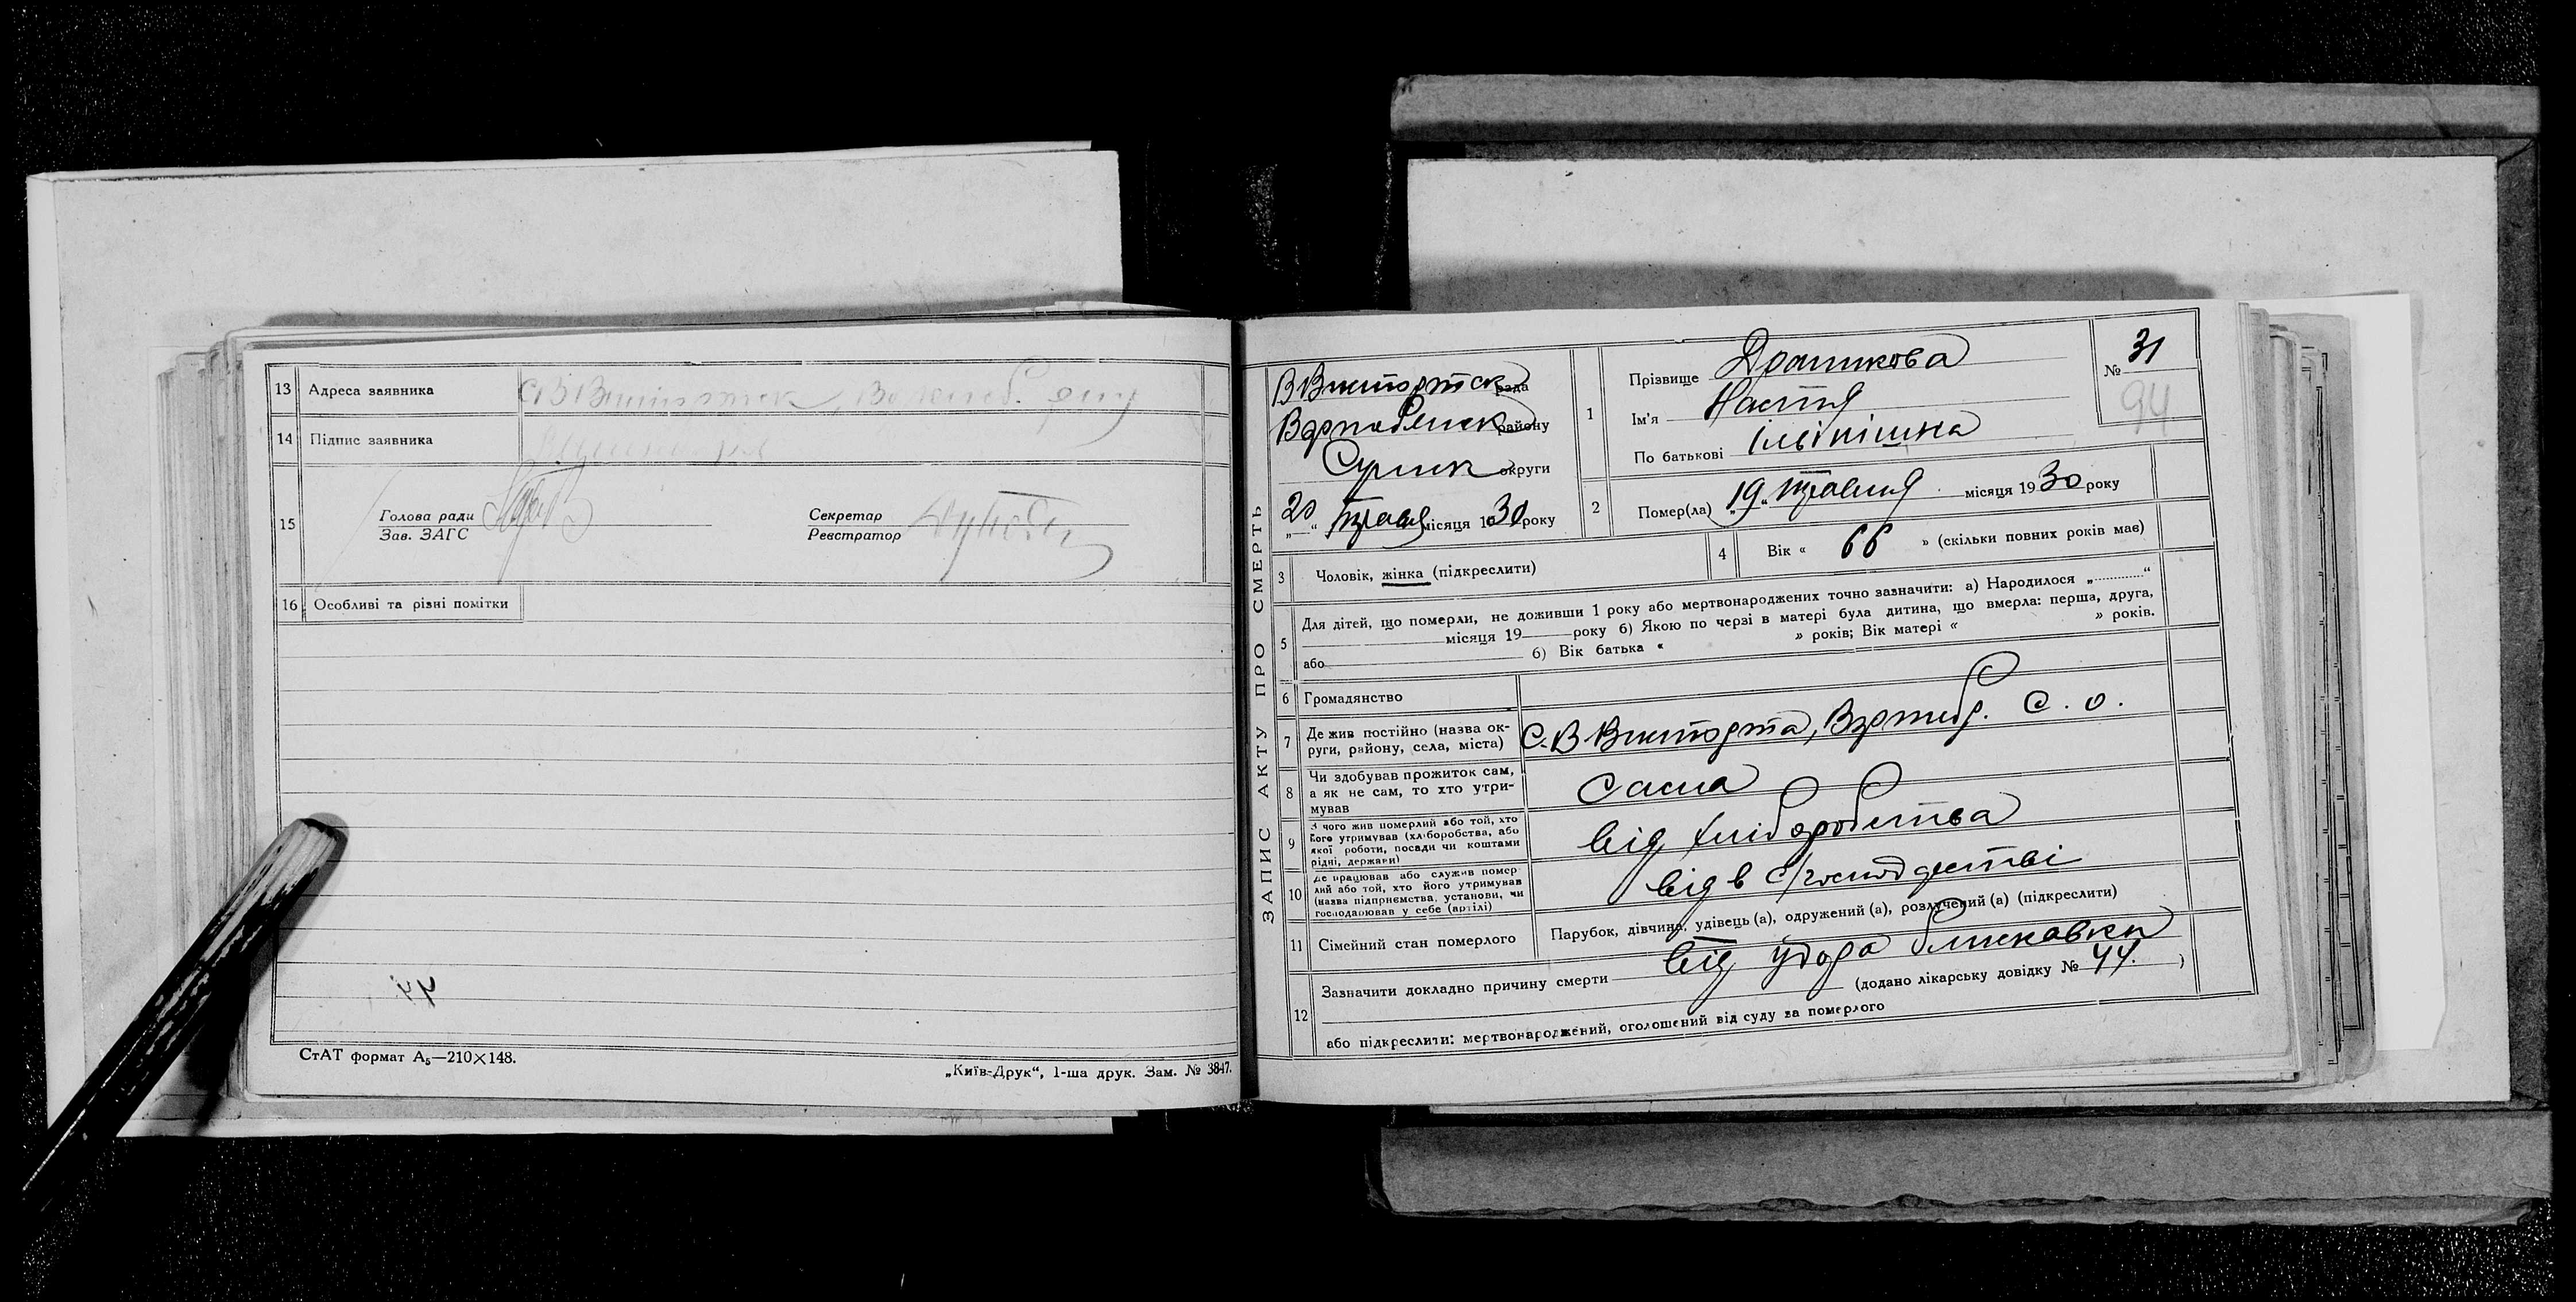 13 Адреса заявника
14 Підпис заявника
15 Голова ради
Зав. ЗАГС
Секретар
Реєстратор
16 Особливі та різні помітки
44
СтАТ формат А5—210×148.
„Київ-Друк“, 1-ша друк. Зам. № 3847.
ЗАПИС АКТУ ПРО СМЕРТЬ
рада
району
Сумск округи
20 травня місяця 1930 року
1 Прізвище
Ім'я Настя
По батькові
№ 31
94
2 Помер(ла) „19“ травня місяця 1930 року
3 Чоловік, жінка (підкреслити)
4 Вік « 66 » (скільки повних років має)
5 Для дітей, що померли, не доживши 1 року або мертвонароджених точно зазначити: а) Народилося „ “
місяця 19 року б) Якою по черзі в матері була дитина, що вмерла: перша, друга,
або б) Вік батька « » років; Вік матері « » років.
6 Громадянство
7 Де жив постійно (назва ок-
руги, району, села, міста)
С. В Висторта, С. О.
8 Чи здобував прожиток сам,
а як не сам, то хто утри-
мував
Сама
9 З чого жив померлий або той, хто
його утримував (хліборобства, або
якої роботи, посади чи коштами
рідні, держави)
від хліборобства
10 Де працював або служив помер-
лий або той, хто його утримував
(назва підприємства, установи, чи
господарював у себе (артілі)
11 Сімейний стан померлого
Парубок, дівчина, удівець (а), одружений (а), розлучений (а) (підкреслити)
12 Зазначити докладно причину смерти від удара блискавки
(додано лікарську довідку № 44. )
або підкреслити: мертвонароджений, оголошений від суду за померлого